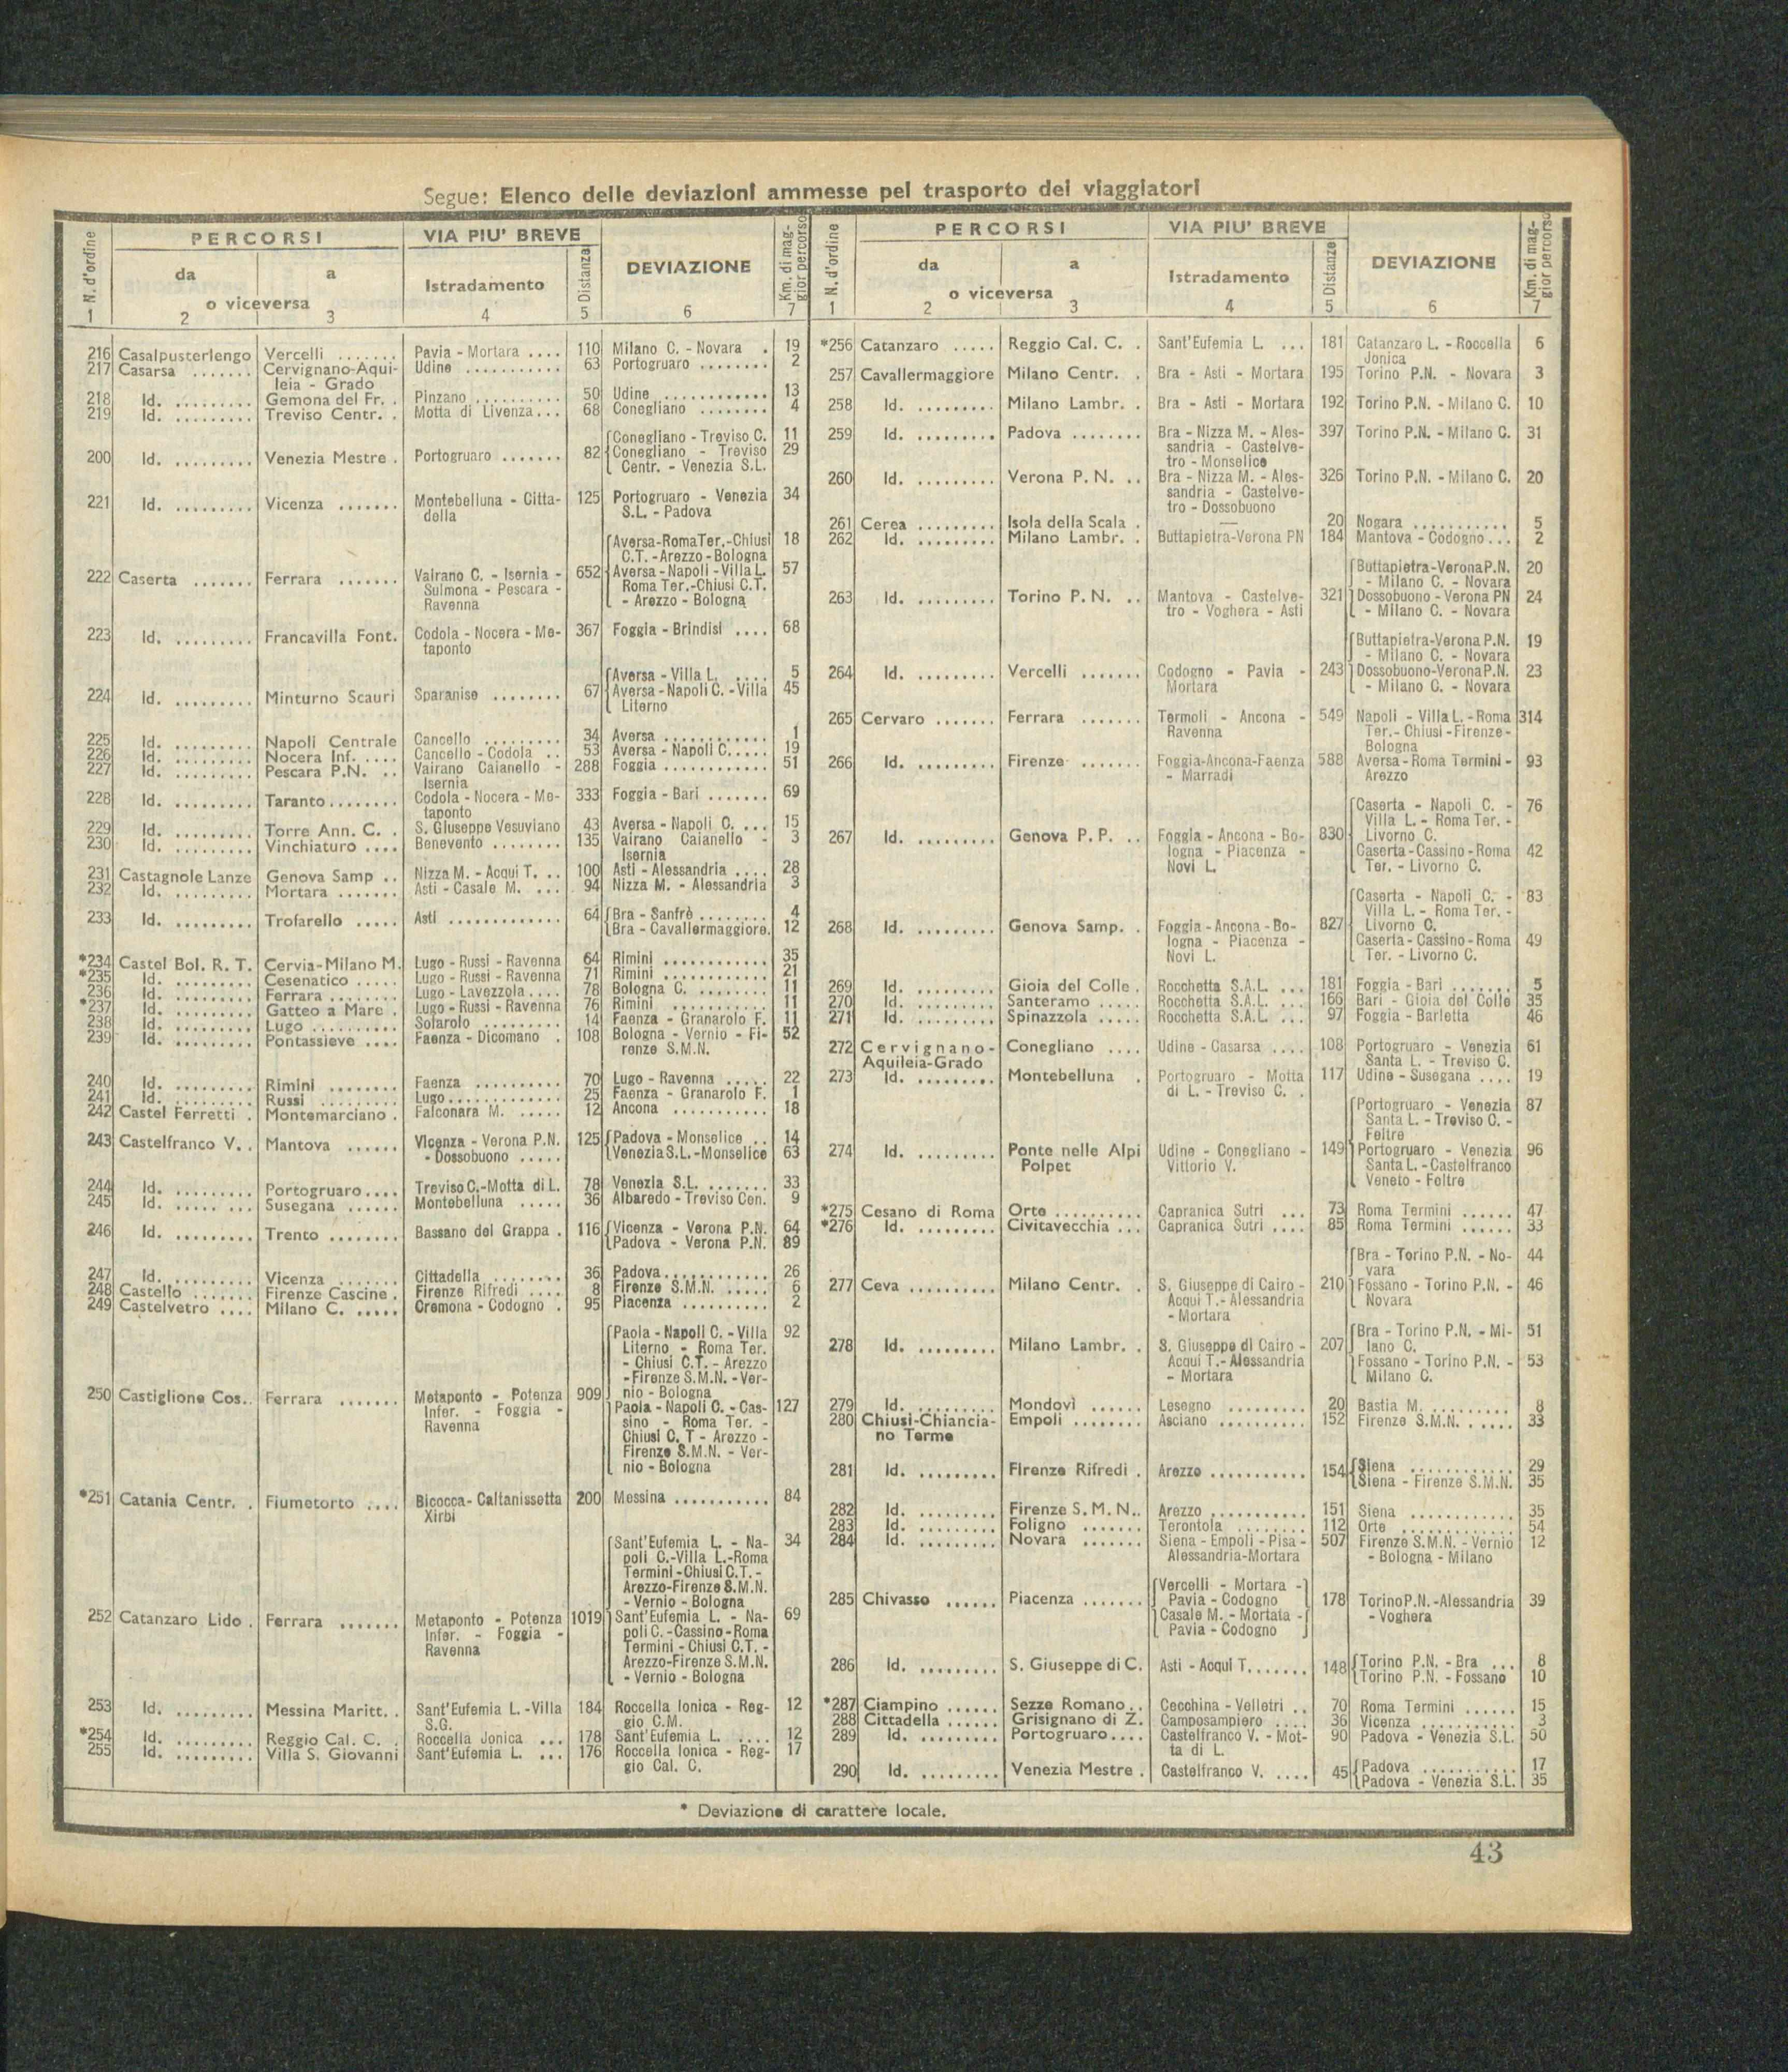 Segue: Elenco delle deviazioni ammesse pel trasporto dei viaggiatori
N. d'ordine PERCORSI VIA PIU' BREVE DEVIAZIONE Km. di maggior percorso
da a Istradamento Distanze
o viceversa
1 2 3 4 5 6 7
216 Casalpusterlengo Vercelli ....... Pavia - Mortara .... 110 Milano C. - Novara . 19
217 Casarsa ....... Cervignano-Aqui- Udine ........... 63 Portogruaro ........ 2
leia - Grado
218 Id. ......... Gemona del Fr. . Pinzano .......... 50 Udine ............ 13
219 Id. ......... Treviso Centr. . Motta di Livenza... 68 Conegliano ........ 4
{Conegliano - Treviso C. 11
200 Id. ......... Venezia Mestre . Portogruaro ....... 82 Conegliano - Treviso 29
Centr. - Venezia S.L.
221 Id. ......... Vicenza ....... Montebelluna - Citta- 125 Portogruaro - Venezia 34
della S.L. - Padova
{Aversa-Roma Ter.-Chiusi 18
C.T. - Arezzo - Bologna
222 Caserta ....... Ferrara ....... Vairano C. - Isernia - 652 Aversa - Napoli - Villa L. 57
Sulmona - Pescara - Roma Ter.-Chiusi C.T.
Ravenna - Arezzo - Bologna
223 Id. ......... Francavilla Font. Codola - Nocera - Me- 367 Foggia - Brindisi .... 68
taponto
{Aversa - Villa L. .... 5
224 Id. ......... Minturno Scauri Sparanise ........ 67 Aversa - Napoli C. - Villa 45
Literno
225 Id. ......... Napoli Centrale Cancello ......... 34 Aversa ............ 1
226 Id. ......... Nocera Inf. .... Cancello - Codola .. 53 Aversa - Napoli C..... 19
227 Id. ......... Pescara P.N. .. Vairano Caianello - 288 Foggia ............ 51
Isernia
228 Id. ......... Taranto........ Codola - Nocera - Me- 333 Foggia - Bari ....... 69
taponto
229 Id. ......... Torre Ann. C. . S. Giuseppe Vesuviano 43 Aversa - Napoli C. ... 15
230 Id. ......... Vinchiaturo .... Benevento ........ 135 Vairano Caianello - 3
Isernia
231 Castagnole Lanze Genova Samp .. Nizza M. - Acqui T. .. 100 Asti - Alessandria .... 28
232 Id. ......... Mortara ....... Asti - Casale M. ... 94 Nizza M. - Alessandria 3
233 Id. ......... Trofarello ..... Asti ............. 64 {Bra - Sanfrè ........ 4
Bra - Cavallermaggiore. 12
*234 Castel Bol. R. T. Cervia-Milano M. Lugo - Russi - Ravenna 64 Rimini ............ 35
*235 Id. ......... Cesenatico ..... Lugo - Russi - Ravenna 71 Rimini ............ 21
236 Id. ......... Ferrara ........ Lugo - Lavezzola .... 78 Bologna C. ........ 11
*237 Id. ......... Gatteo a Mare . Lugo - Russi - Ravenna 76 Rimini .......... 11
238 Id. ......... Lugo .......... Solarolo ......... 14 Faenza - Granarolo F. 11
239 Id. ......... Pontassieve .... Faenza - Dicomano . 108 Bologna - Vernio - Fi- 52
renze S.M.N.
240 Id. ......... Rimini ........ Faenza .......... 70 Lugo - Ravenna ..... 22
241 Id. ......... Russi ......... Lugo............. 25 Faenza - Granarolo F. 1
242 Castel Ferretti . Montemarciano . Falconara M. ..... 12 Ancona ........... 18
243 Castelfranco V. . Mantova ...... Vicenza - Verona P.N. 125 {Padova - Monselice .. 14
- Dossobuono ..... Venezia S.L. -Monselice 63
244 Id. ......... Portogruaro.... Treviso C.-Motta di L. 78 Venezia S.L. ....... 33
245 Id. ......... Susegana ...... Montebelluna ..... 36 Albaredo - Treviso Cen. 9
246 Id. ......... Trento ........ Bassano del Grappa . 116 {Vicenza - Verona P.N. 64
Padova - Verona P.N. 89
247 Id. ......... Vicenza ....... Cittadella ........ 36 Padova............ 26
248 Castello ....... Firenze Cascine . Firenze Rifredi .... 8 Firenze S.M.N. ..... 6
249 Castelvetro .... Milano C. ..... Cremona - Codogno . 95 Piacenza .......... 2
{Paola - Napoli C. - Villa 92
Literno - Roma Ter.
- Chiusi C.T. - Arezzo
- Firenze S.M.N. - Ver-
250 Castiglione Cos.. Ferrara ....... Metaponto - Potenza 909 nio - Bologna
Infer. - Foggia - Paola - Napoli C. - Cas- 127
Ravenna sino - Roma Ter. -
Chiusi C. T - Arezzo -
Firenze S.M.N. - Ver-
nio - Bologna
*251 Catania Centr. . Fiumetorto .... Bicocca- Caltanissetta 200 Messina ........... 84
Xirbi
{Sant'Eufemia L. - Na- 34
poli C.-Villa L.-Roma
Termini - Chiusi C.T. -
Arezzo-Firenze S.M.N.
- Vernio - Bologna
252 Catanzaro Lido . Ferrara ....... Metaponto - Potenza 1019 Sant'Eufemia L. - Na- 69
Infer. - Foggia - poli C. -Cassino - Roma
Ravenna Termini - Chiusi C.T. -
Arezzo-Firenze S.M.N.
- Vernio - Bologna
253 Id. ......... Messina Maritt. . Sant'Eufemia L. -Villa 184 Roccella Ionica - Reg- 12
S.G. gio C.M.
*254 Id. ......... Reggio Cal. C. . Roccella Jonica ... 178 Sant'Eufemia L. .... 12
255 Id. ......... Villa S. Giovanni Sant'Eufemia L. ... 176 Roccella Ionica - Reg- 17
gio Cal. C.
N. d'ordine PERCORSI VIA PIU' BREVE DEVIAZIONE Km. di maggior percorso
da a Istradamento Distanze
o viceversa
1 2 3 4 5 6 7
*256 Catanzaro ..... Reggio Cal. C. . Sant'Eufemia L. ... 181 Catanzaro L. - Roccella 6
Jonica
257 Cavallermaggiore Milano Centr. . Bra - Asti - Mortara 195 Torino P.N. - Novara 3
258 Id. ......... Milano Lambr. . Bra - Asti - Mortara 192 Torino P.N. - Milano C. 10
259 Id. ......... Padova ........ Bra - Nizza M. - Ales- 397 Torino P.N. - Milano C. 31
sandria - Castelve-
tro - Monselice
260 Id. ......... Verona P. N. .. Bra - Nizza M. - Ales- 326 Torino P.N. - Milano C. 20
sandria - Castelve-
tro - Dossobuono
261 Cerea ......... Isola della Scala . — 20 Nogara ........... 5
262 Id. ......... Milano Lambr. . Buttapietra-Verona PN 184 Mantova - Codogno... 2
{Buttapietra-Verona P.N. 20
- Milano C. - Novara
263 Id. ......... Torino P. N. .. Mantova - Castelve- 321 Dossobuono - Verona PN 24
tro - Voghera - Asti - Milano C. - Novara
{Buttapietra-Verona P.N. 19
- Milano C. - Novara
264 Id. ......... Vercelli ....... Codogno - Pavia - 243 Dossobuono-Verona P.N. 23
Mortara - Milano C. - Novara
265 Cervaro ....... Ferrara ....... Termoli - Ancona - 549 Napoli - Villa L. - Roma 314
Ravenna Ter.- Chiusi - Firenze -
Bologna
266 Id. ......... Firenze ....... Foggia-Ancona-Faenza 588 Aversa - Roma Termini - 93
- Marradi Arezzo
{Caserta - Napoli C. - 76
Villa L. - Roma Ter. -
267 Id. ......... Genova P. P. .. Foggia - Ancona - Bo- 830 Livorno C.
logna - Piacenza - Caserta - Cassino - Roma 42
Novi L. Ter. - Livorno C.
{Caserta - Napoli C. - 83
Villa L. - Roma Ter. -
268 Id. ......... Genova Samp. . Foggia - Ancona - Bo- 827 Livorno C.
logna - Piacenza - Caserta - Cassino - Roma 49
Novi L. Ter. - Livorno C.
269 Id. ......... Gioia del Colle . Rocchetta S.A.L. ... 181 Foggia - Bari ....... 5
270 Id. ......... Santeramo ..... Rocchetta S.A.L. ... 166 Bari - Gioia del Colle 35
271 Id. ......... Spinazzola ..... Rocchetta S.A.L. ... 97 Foggia - Barletta 46
272 Cervignano- Conegliano .... Udine - Casarsa .... 108 Portogruaro - Venezia 61
Aquileia-Grado Santa L. - Treviso C.
273 Id. ......... Montebelluna . Portogruaro - Motta 117 Udine - Susegana .... 19
di L. - Treviso C. .
{Portogruaro - Venezia 87
Santa L. - Treviso C. -
Feltre
274 Id. ......... Ponte nelle Alpi Udine - Conegliano - 149 Portogruaro - Venezia 96
Polpet Vittorio V. Santa L. - Castelfranco
Veneto - Feltre
*275 Cesano di Roma Orte .......... Capranica Sutri ... 73 Roma Termini ...... 47
*276 Id. ......... Civitavecchia ... Capranica Sutri .... 85 Roma Termini ...... 33
{Bra - Torino P.N. - No- 44
vara
277 Ceva .......... Milano Centr. . S. Giuseppe di Cairo - 210 Fossano - Torino P.N. - 46
Acqui T.- Alessandria Novara
- Mortara
{Bra - Torino P.N. - Mi- 51
278 Id. ......... Milano Lambr. . S. Giuseppe di Cairo - 207 lano C.
Acqui T.- Alessandria Fossano - Torino P.N. - 53
- Mortara Milano C.
279 Id. ......... Mondovì ...... Lesegno ......... 20 Bastia M. ......... 8
280 Chiusi-Chiancia- Empoli ........ Asciano .......... 152 Firenze S.M.N. ..... 33
no Terme
281 Id. ......... Firenze Rifredi . Arezzo ........... 154 {Siena ............ 29
Siena - Firenze S.M.N. 35
282 Id. ......... Firenze S. M. N.. Arezzo ........... 151 Siena ............ 35
283 Id. ......... Foligno ....... Terontola ........ 112 Orte ............. 54
284 Id. ......... Novara ....... Siena - Empoli - Pisa - 507 Firenze S.M.N. - Vernio 12
Alessandria-Mortara - Bologna - Milano
{Vercelli - Mortara -}
285 Chivasso ...... Piacenza ....... Pavia - Codogno 178 Torino P.N. -Alessandria 39
Casale M. - Mortata - - Voghera
Pavia - Codogno
286 Id. ......... S. Giuseppe di C. Asti - Acqui T....... 148 {Torino P.N. - Bra ... 8
Torino P.N. - Fossano 10
*287 Ciampino ...... Sezze Romano .. Cecchina - Velletri .. 70 Roma Termini ...... 15
288 Cittadella ...... Grisignano di Z. Camposampiero .... 36 Vicenza ........... 3
289 Id. ......... Portogruaro.... Castelfranco V. - Mot- 90 Padova - Venezia S.L. 50
ta di L.
290 Id. ......... Venezia Mestre . Castelfranco V. .... 45 {Padova ........... 17
Padova - Venezia S.L. 35
* Deviazione di carattere locale.
43